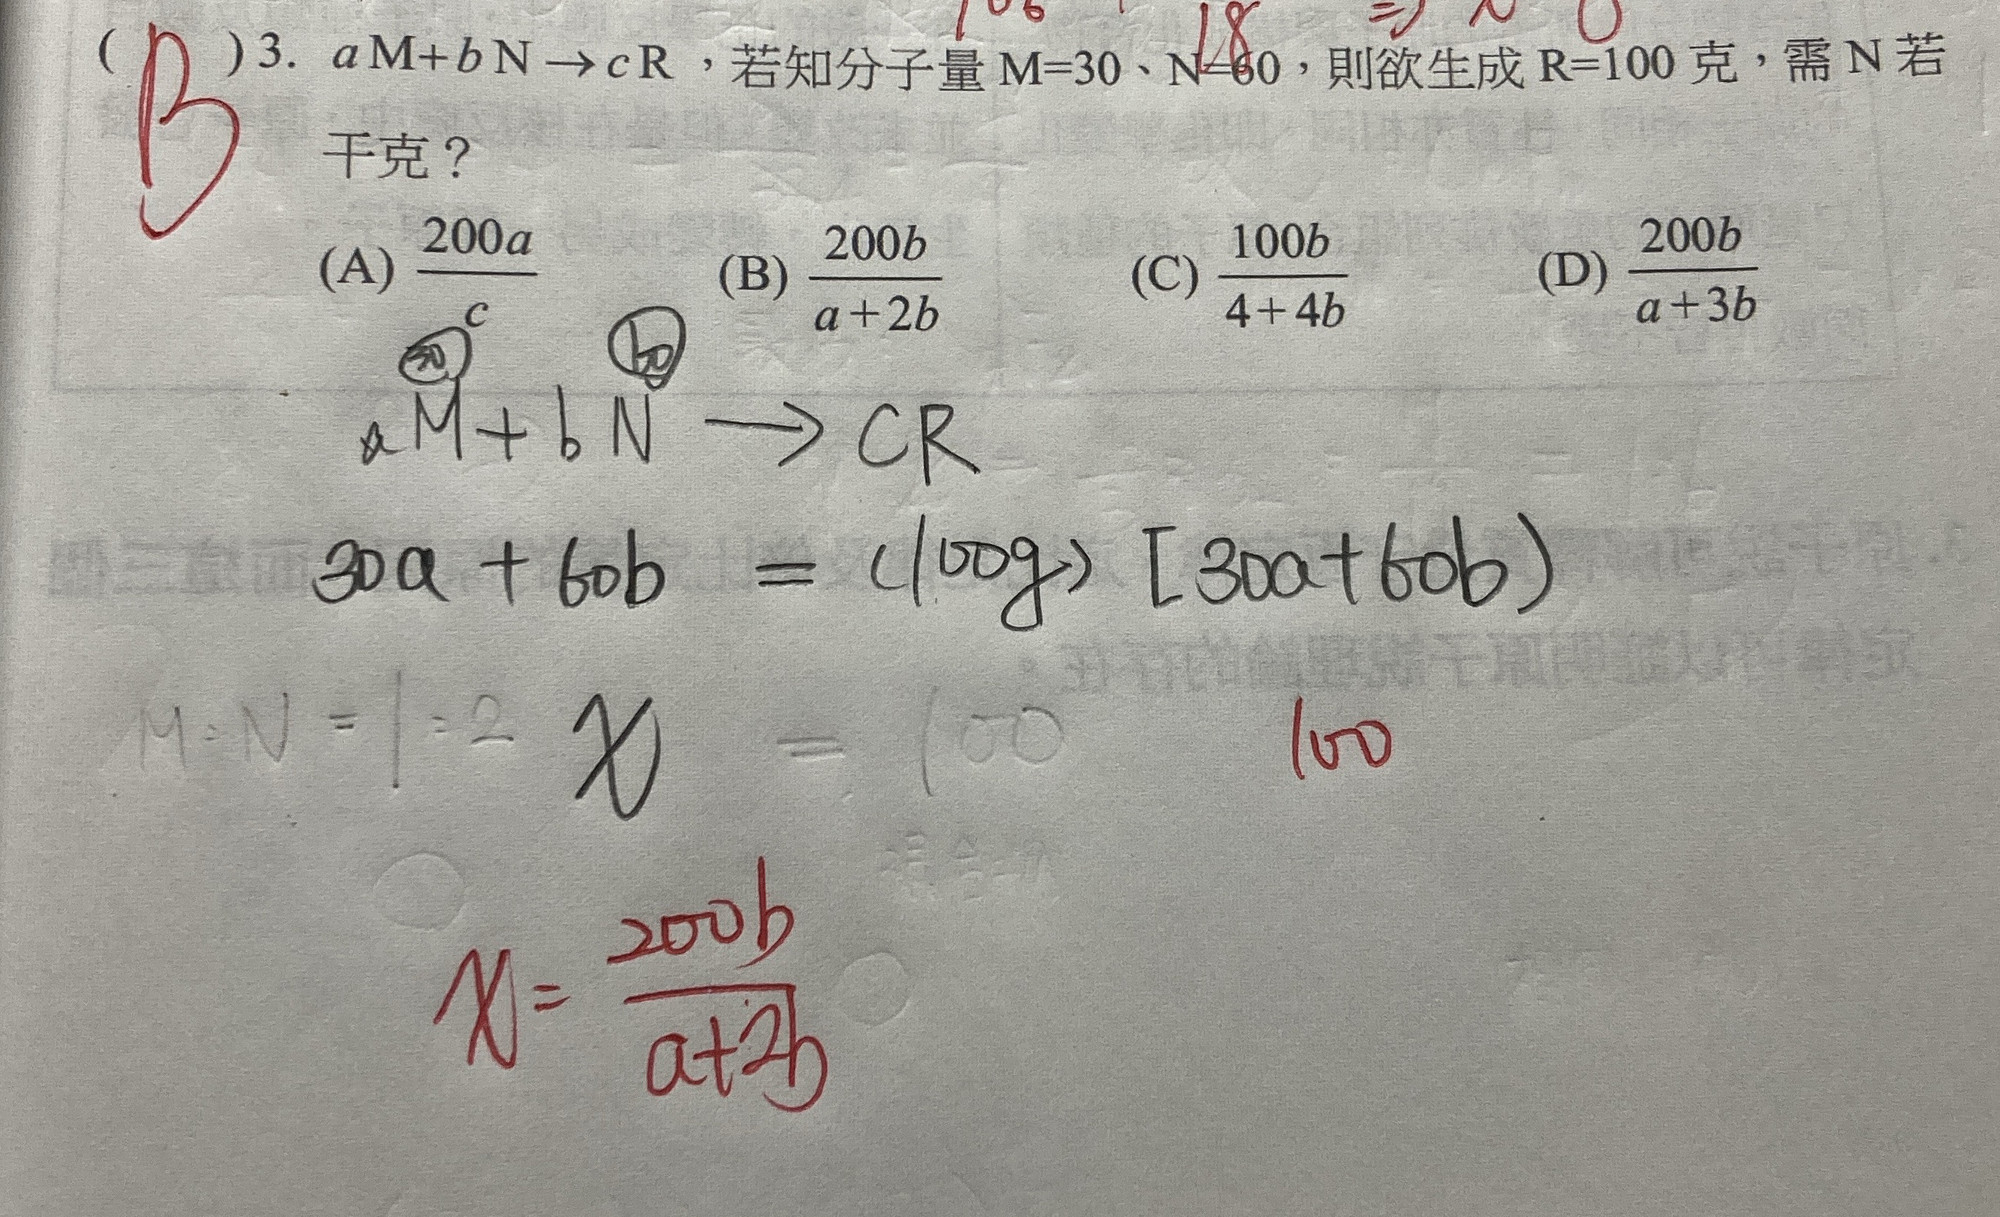 106 18 ⇒
( B ) 3. aM+bN→cR,若知分子量 M=30、N=60,則欲生成 R=100 克,需 N 若
干克?
(A) 200a/c (B) 200b/(a+2b) (C) 100b/(4+4b) (D) 200b/(a+3b)
30 60
aM+bN → CR
30a + 60b = (100g) [30a+60b)
M:N=1:2 x = 100 100
x = 200b/(a+2b)